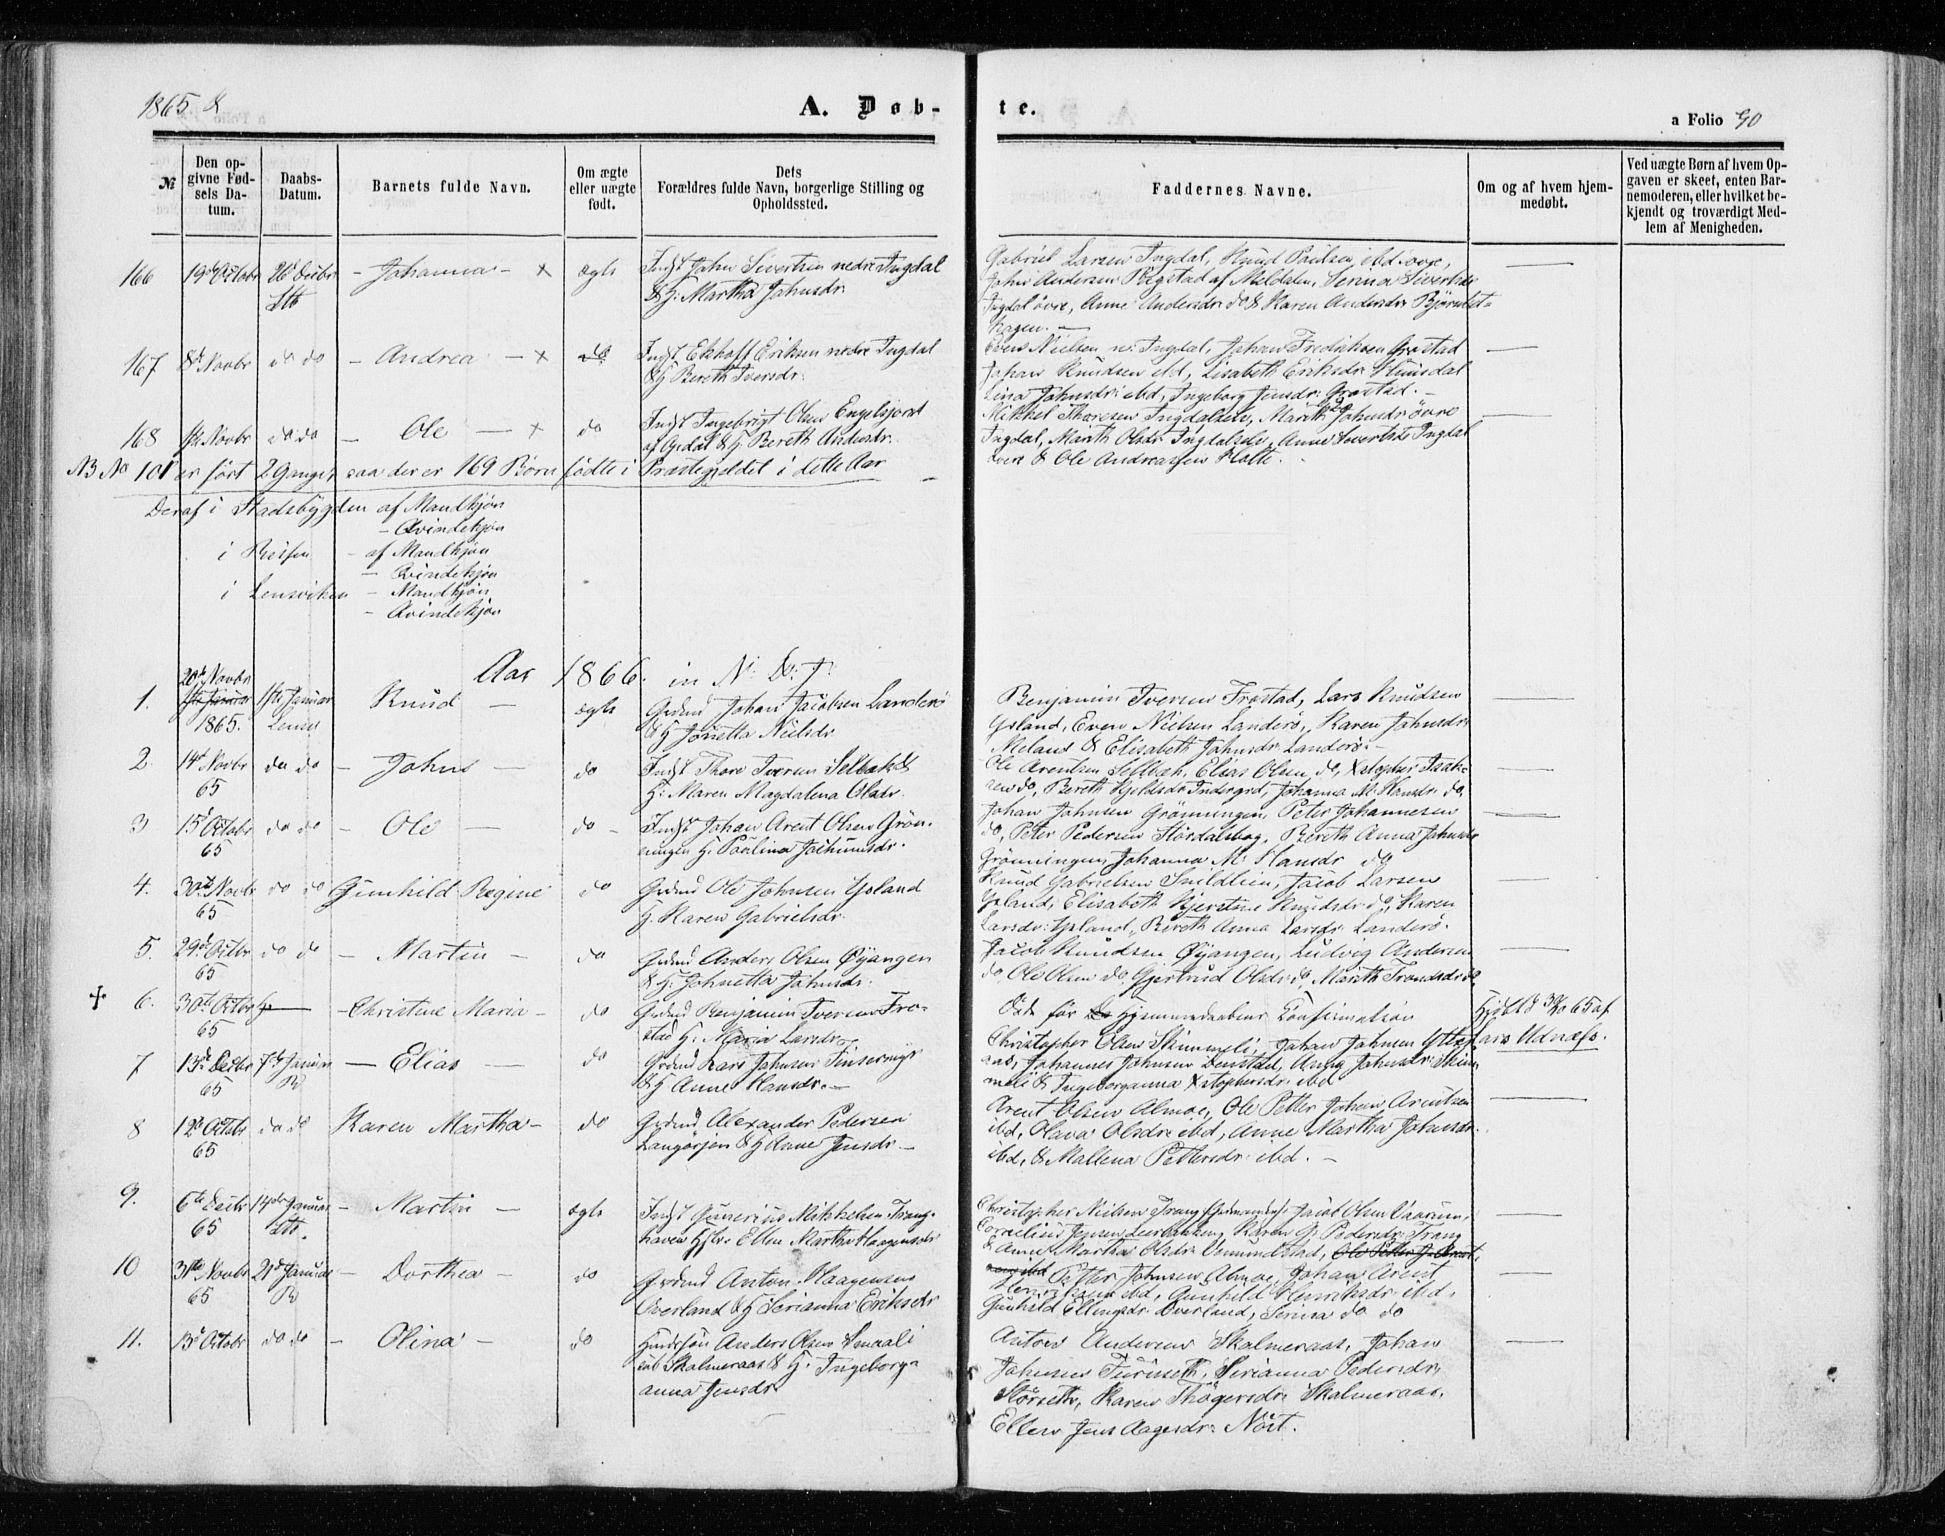 1865. &
A. Døb-
te.
a Folio 90
№
Den op-
givne Fød-
sels Da-
tum.
Daabs-
Datum.
Barnets fulde Navn.
Om ægte
eller uægte
født.
Dets
Forældres fulde Navn, borgerlige Stilling og
Opholdssted.
Faddernes Navne.
Om og af hvem hjem-
medøbt.
Ved uægte Børn af hvem Op-
gaven er skeet, enten Bar-
nemoderen, eller hvilket be-
kjendt og troværdigt Med-
lem af Menigheden.
166
19de Octobr
26 Decbr
Stb
- Johanna - x
ægte
Indst John Sivertsen nedre Ingdal
& H: Martha Johnsdr
Gabriel Larsen Ingdal, Knud Paulsen ibd øvre,
John Andersen Ragstad af Meldalen, Serina Sivertsdr
Ingdal øvre, Anne Andersdr do & Karen Andersdr Bjørnlist-
hagen. -
167
8de Novbr
do do
- Andrea - x
do
Indst Ekhoff Eriksen nedre Ingdal
& H Bereth Iversdr.
Even Nielsen n: Ingdal, Johan Fredriksen Grøstad
Johan Knudsen ibd, Lisabeth Eriksdr Humsdal
Lina Johnsdr: ibd, Ingeborg Jensdr: Grøstad. -
168
Novbr
do do
- Ole - x
do
Indst Ingebrigt Olsen Engelsjord
af & H. Bereth Andersdr.
Mikkel Thoresen Ingdalseie, Marith Johnsdr øvre
Ingdal, Marith Olsdr Ingdalseie, Anne Sivertsdr Ingdal
øvre & Ole Andreassen Holte.
NB No 101 er ført 2 Ganger, saa der er 169 Børn fødte i Præstegjeldet i dette Aar
Deraf i Stadsbygden af Mandkjøn
- Qvindekjøn
i Reisen - af Mandkjøn
- Qvindekjøn
i Lensviken - Mandkjøn
- Qvindekjøn
Aar 1866. in N: D: J:
1.
20de Novbr
1ste Januar
1865.
1ste Januar
Lensv
Knud -
ægte
Grdmd Johan Jacobsen Landerø
& H Jonetta Nielsdr
Benjamin Iversen Frøstad, Lars Knudsen
Ysland, Even Nielsen Landerø, Karen Johnsdr
Meland & Elisabeth Johnsdr Landerø. -
2.
14de Novbr
65
do do
- Johns -
do
Indst Thore Iversen Selbæk &
H: Maren Magdalena Olsdr.
Ole Arentsen Selbæk, Elias Olsen do, Xstopher Isak-
sen do, Bereth Kjeldsdr Indergrd, Johanna M. Hansdr do.
3
15de Octobr
65
do do
- Ole -
do -
Indst Johan Arent Olsen Grøn-
ningen H. Paulina Jochumsdr.
Johan Johnsen Grønningen, Peter Johannesen
do, Peter Pedersen Størdalshog, Bereth Anna Johnsdr
Grønningen, Johanna M. Hansdr do
4.
30te Novbr
65
do do
Gunhild Regine
do
Grdmd Ole Johnsen Ysland
H. Karen Gabrielsdr.
Knud Gabrielsen Snildlien, Jacob Larsen
Ysland, Elisabeth Kjerstine Knudsdr do, Karen
Larsdr: Ysland, Bereth Anna Larsdr Landerø.
5.
29de Octbr
65
do do
- Martin -
do
Grdmd Anders Olsen Øyangen
& H. Johnetta Johnsdr.
Jacob Knudsen Øyangen, Ludvig Andersen
do, Ole Olsen do, Gjertrud Olsdr: do, Marith Trondsdr do
+ 6.
30te Octbr
65
- Christine Maria -
do
Grdmd Benjamin Iversen Frø-
stad H. Maria Larsdr.
Døde før Hjemmedaabens Confirmation
Hjdbt d 30/10 65 af
Lars Udnæss.
7
13de Decbr
65
7de Januar
R
- Elias
do
Grdmd Lars Johnsen Finsermyr
& H Anne Hansdr. -
Christopher Olsen Skimmeli, Johan Johnsen Ytteraas
Johannes Johnsen Denstdal, Anna Johnsdr Skim-
meli & Ingeborganna Xstophersdr ibd
8
12de Octbr
65
do do
Karen Martha -
do
Grdmd Alexander Pedersen
Langørjen & H Anne Jensdr. -
Arent Olsen Almoe, Ole Petter Johan Arentsen
ibd, Olava Olsdr ibd, Anne Martha Johnsdr.
ibd, & Mallena Pettersdr ibd. -
9.
6te Decbr
65
14de Januar
Stb.
- Martin
ægte
Indst Gunerius Mikkelsen Trang-
haven Hstr. Ellen Martha Haagensdr
Christopher Nielsen Trang, Jacob Olsen Uaarum,
Cornelius Jensen Leerbakken, Karen P. Pedersdr Trang
& Anne Martha Olsdr Osmundstad,
10
3te Novbr
65
21de Januar
R
- Dorthea -
do
Grdmd Anton Haagensen
Overland & H Serianna Eriksdr
Petter Johnsen Almoe, Johan Arent
Henriksen ibd, Gunhild Henriksdr ibd,
Gunhild Ellingsdr Overland, Serina do do
11.
13de Octobr
do do
- Olina -
do
Huusfør Anders Olsen Smaali
Skalmeraas & H. Ingeborg-
anna Jensdr
Anton Andersen Skalmeraas, Johan
Johnsen Furuseth, Serianna Pedersdr
Størseth, Karen Thøgersdr Skalmeraas,
Ellen Jens Aagesdr: Nøst.